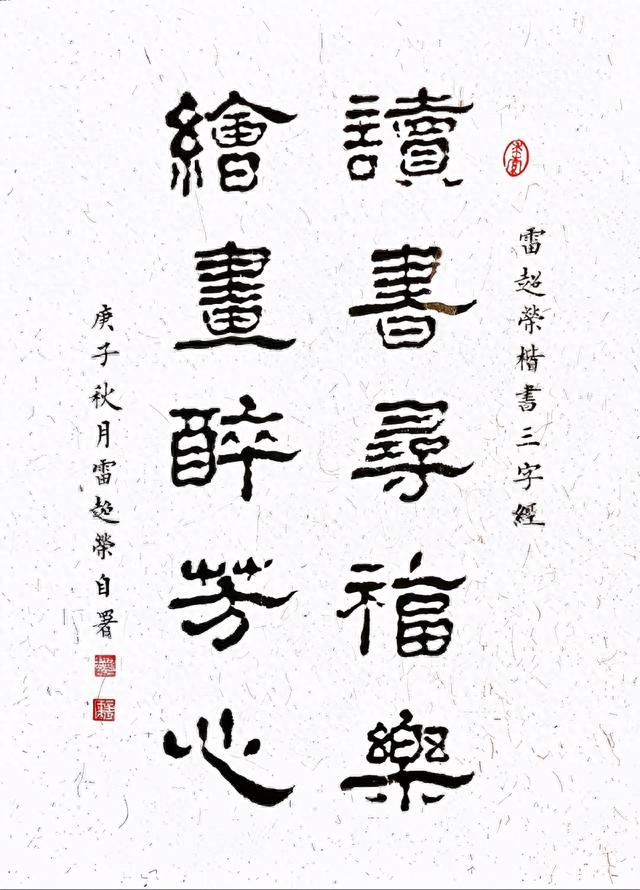 雷超榮楷書三字經
讀書尋福樂
繪畫醉芳心
庚子秋月雷超榮自署